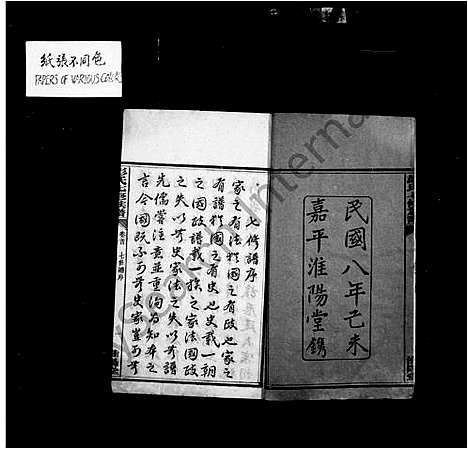 紙張不同色
PAPERS OF VARIOUS COLOR
民國八年己未
嘉平淮陽堂鐫
七修譜序
家之有法猶國之有政也家之
有譜猶國之有史也史載一朝
之國政譜載一族之家法國政
之失以無史家法之失以無譜
先儒嘗注意並重洵為知本之
言今國既不可無史家豈可無
卷首 七修譜序